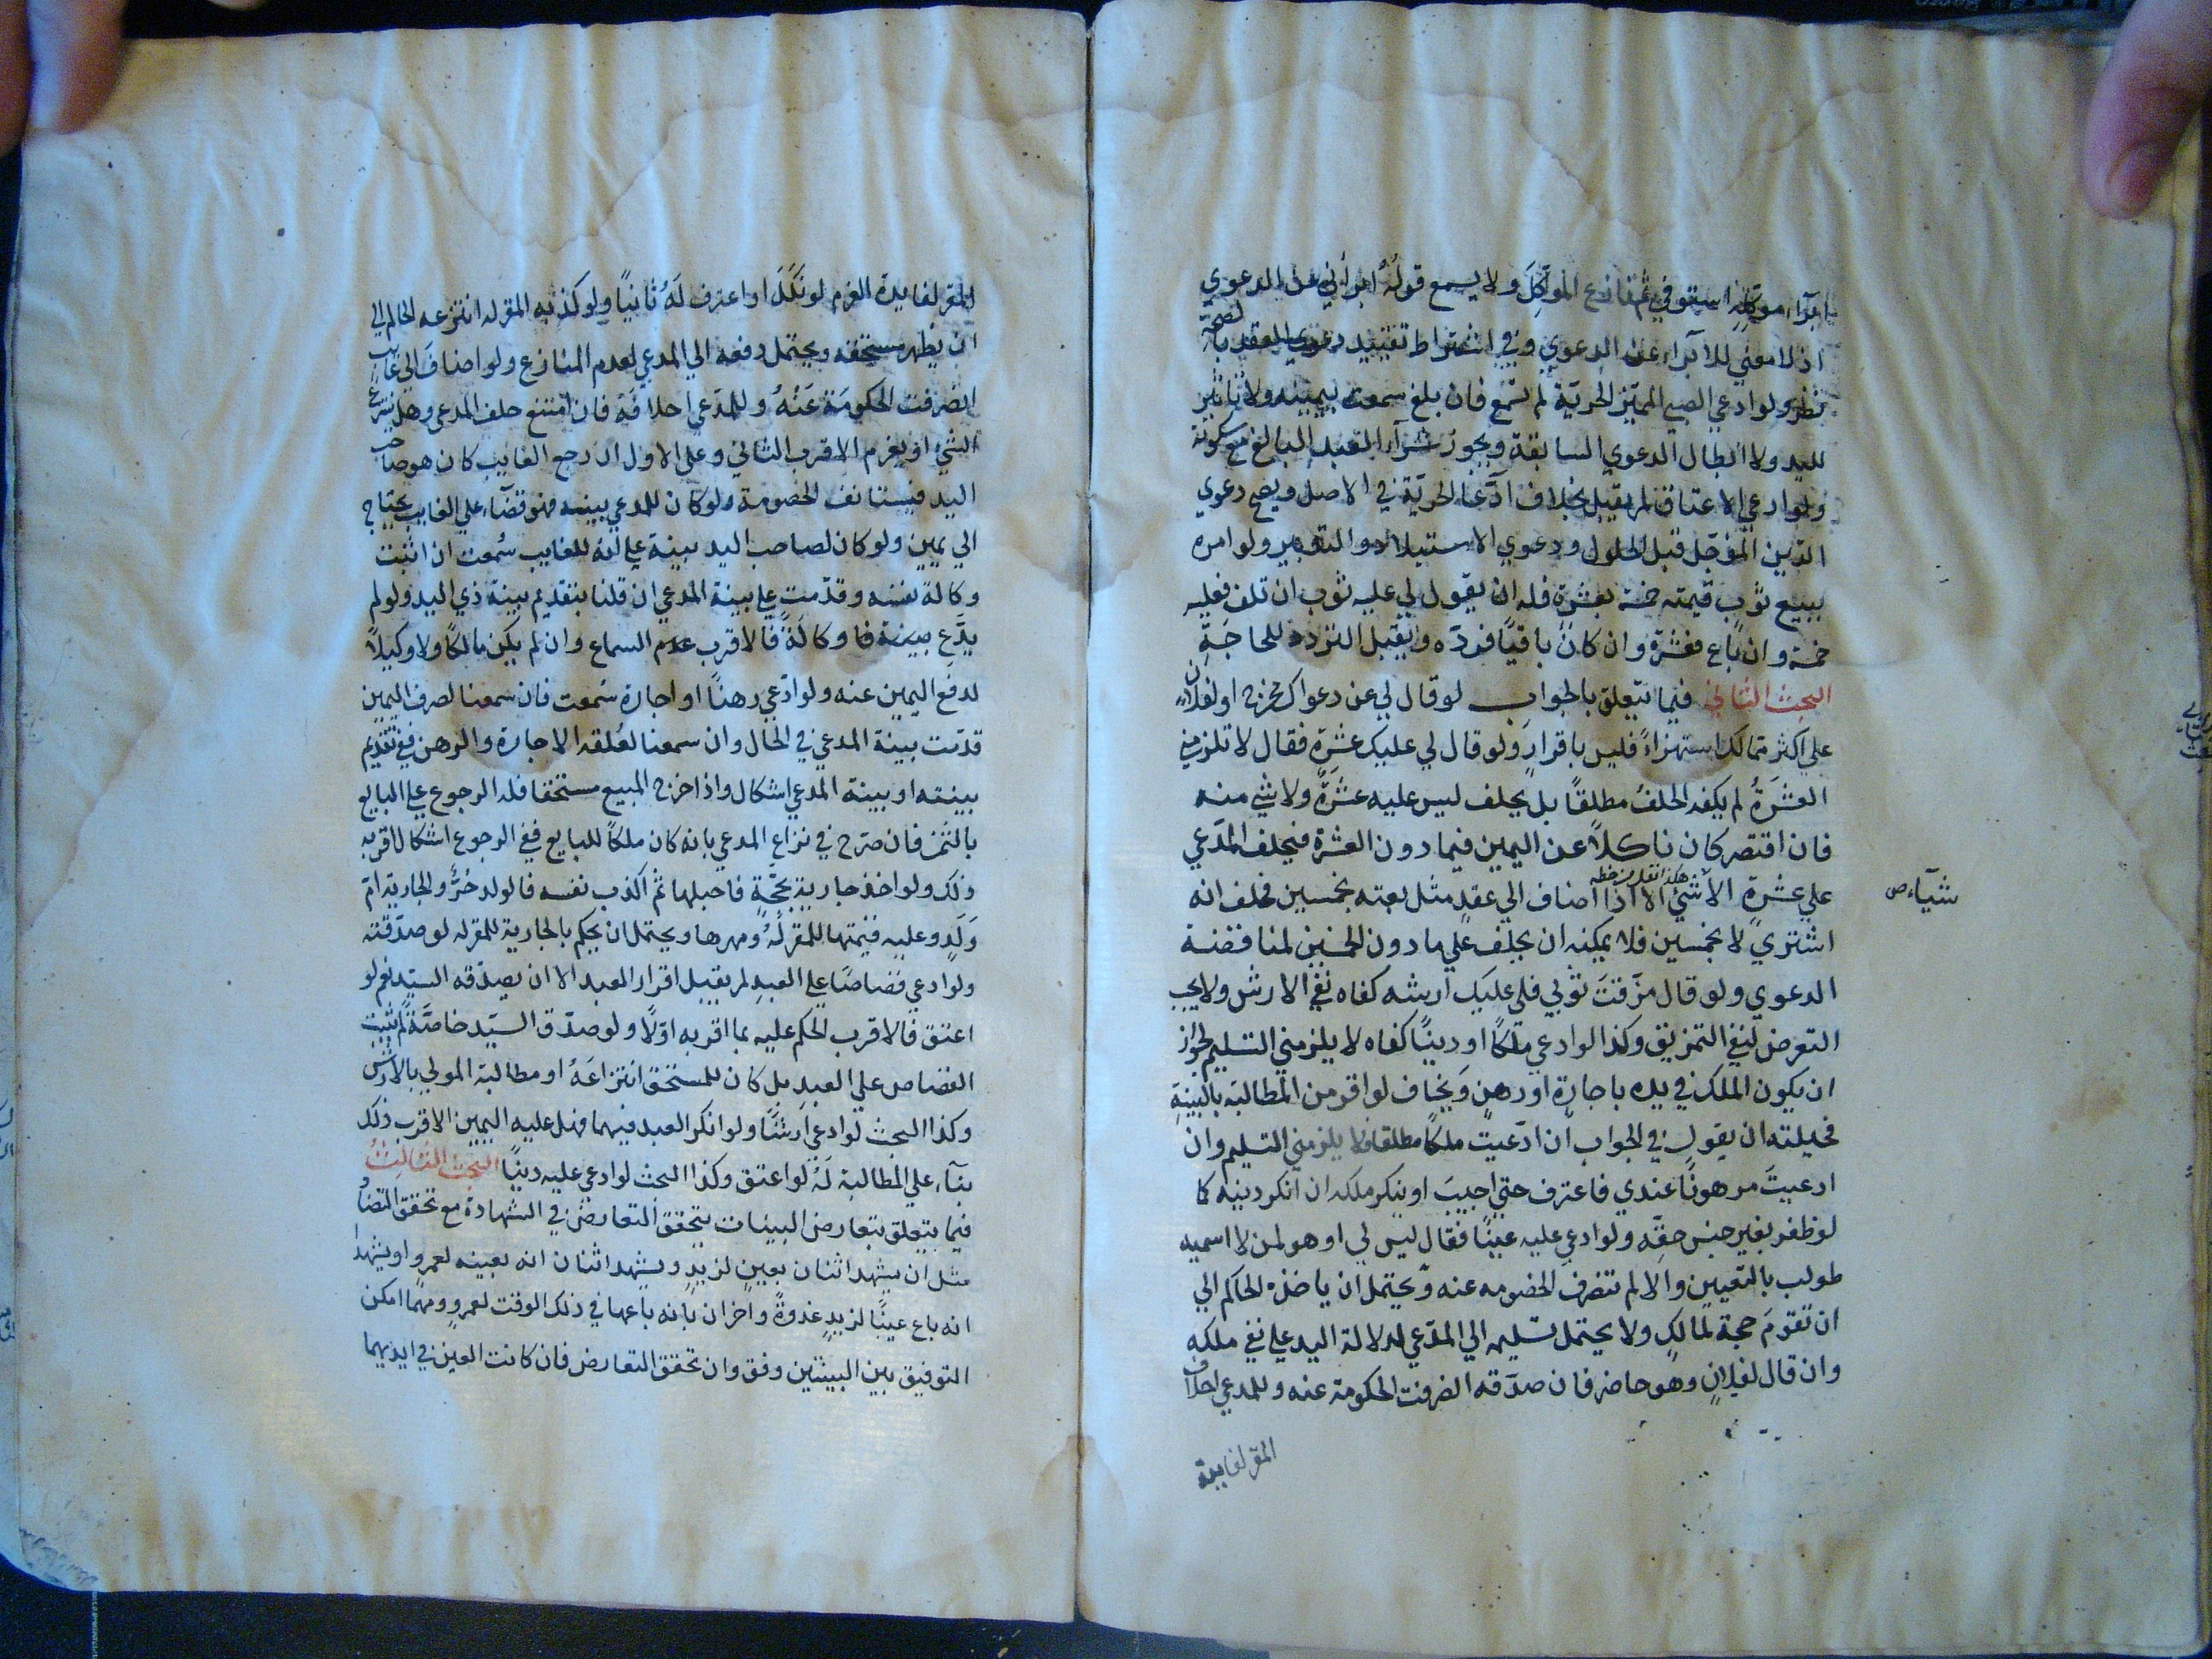 ابرآء موكله استوفي ثم نازع الموكل ولا يسمع قوله ابرأني عن الدعوي
اذ لا معني للابراء عن الدعوي وفي اشتراط تقييد دعوي العقد بالصحة
نظر ولو ادعي الصبي المميّز الحريّة لم تسمع فان بلغ سمعت بيمينه ولا تاثير
لليد ولا ابطال الدعوي السابقة ويجوز شرآء العبد البالغ مع سكوته
ولو ادعي الاعتاق لم يقبل بخلاف ادّعا الحريّة في الاصل ويصح دعوي
الدين المؤجّل قبل الحلول ودعوي الاستيلاد والتدبير ولو امره
ببيع ثوب قيمته خمسة بعشرة فله ان يقول لي عليه ثوب ان تلف فعليه
خمسة وان باع فعشرة وان كان باقيًا فردّه ويقبل التردد للحاجَةِ
البحث الثاني فيما يتعلق بالجواب لو قال لي عن دعواك مخرج او لفلان
علي اكثر ممالك استهزاءً فليس باقرارٍ ولو قال لي عليك عشرة فقال لا تلزمني
العشرَةُ لم يكفه الحلفُ مطلقًا بل يحلف ليس عليه عشرةٌ ولا شي منه
فان اقتصر كان ناكلاً عن اليمين فيما دون العشرة فيحلف المدّعي
هكذا نقل من خطه
علي عشرة الا شئ الا اذا اضاف الي عقدٍ مثل بعته بخمسين فحلف انه
شيآء ص
اشتري لا بخمسين فلا يمكنه ان يحلف علي ما دون الخمسين لمناقضة
الدعوي ولو قال مزّقتَ ثوبي فلي عليك ارشه كفاه نفي الارش ولا يجب
التعرض لنفي التمزيق وكذا لو ادعي ملكًا او دينًا كفاه لا يلزمني التسليم لجواز
ان يكون الملك في يده باجارة او رهنٍ وَيخاف لو اقر من المطالبة بالبينةِ
فحيلته ان يقول في الجواب ان ادّعيت ملكًا مطلقا فلا يلزمني التسليم وان
ادعيتَ مرهونًا عندي فاعترف حتي اجيبَ او ينكر ملكه ان انكر دينه كا
لو ظفر بغير جنس حقِّه ولو ادعي عليه عينًا فقال ليس لي او هو لمن لا اسميه
طولب بالتعيين والا لم تنصرف الخصومه عنه ويحتمل ان ياخذه الحاكم الي
ان تقومَ حجة لمالكٍ ولا يحتمل تسليمه الي المدّعي لدلالة اليد علي نفي ملكه
وان قال لفلانٍ وهو حاضر فان صدّقه انصرفت الحكومة عنه وللمدعي احلاف
المقر لفايدة
المقر لفايدة الغرم لو نَكَلَ او اعترف لَهُ ثانيًا ولو كذّبه المقر له انتزعه الحاكم الي
ان يظهر مستحقه ويحتمل دفعه الي المدعي لعدم المنازع ولو اضافَ الي غايب
انصرفت الحكومَة عَنْهُ وللمدّعي احلافه فان امتنع حلف المدعي وهل ينتزع
الشئ او يغرم الاقرب الثاني وعلي الاول ان رجع الغايب كان هو صاحب
اليد فيستانف الخصومة ولو كان للمدعي بينه فهو قضآء علي الغايب يحتاج
الي يمين ولو كان لصاحب اليد بينة علي انه للغايب سُمعت ان اثبت
وكالة نفسه وقدّمت علي بينة المدعي ان قلنا بتقديم بينة ذي اليد ولو لم
يدَّعِ بينة فا وكالةً فالاقرب عدم السماع وان لم يكن مالكًا ولا وكيلاً
لدفع اليمين عنه ولو ادّعي رهنًا او اجارة سُمعت فان سمعنا لصرف اليمين
قدّمت بينة المدعي في الحال وان سمعنا لعُلقه الاجارة والرهن ففي تقديم
بينته او بينة المدعي اشكال واذا خرج المبيع مستحقا فله الرجوع علي البايع
بالثمن فان صرّح في نزاع المدعي بانه كان ملكًا للبايع ففي الرجوع اشكال اقربه
ذلك ولو اخذ جارية بحجّةٍ فاحبلها ثم اكذب نفسه فالولد حُرٌّ والجارية امّ
وَلَدٍ وعليه قيمتها للمقر لَهُ ومهرها ويحتمل ان يحكم بالجارية للمقر له لو صدّقته
ولو ادعي قصاصًا علي العبد لم يقبل اقرار العبد الا ان يصدّقه السيّد نعم لو
اعتق فالاقرب الحكم عليه بما اقر به اوّلاً ولو صدّق السيّد خاصّةً لم يثبت
القصاص علي العبد بل كان للمستحق انتزاعَهُ او مطالبة المولي بالارش
وكذا البحث لو ادعي ارشًا ولو انكر العبد فيهما فهل عليه اليمين الاقرب ذلك
بنآء علي المطالبة لَهُ لو اعتق وكذا البحث لو ادعي عليه دينًا البحث الثالث
فيما يتعلق بتعارض البينات يتحقق التعارض في الشهادة مع تحقق التضاد
مثل ان يشهد اثنان بعينٍ لزيدٍ ويشهد اثنان انه بعينه لعمرو او يشهدا
انه باع عينًا لزيدٍ غدوةً واخران بانه باعها في ذلك الوقت لعمروٍ ومهما امكن
التوفيق بين البينتين وفق وان تحقق التعارض فان كانت العين في ايديهما